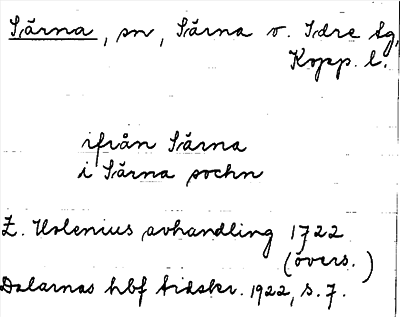 Särna, sn, Särna o. Idre tg,
Kopp. l.
ifrån Särna
i Särna sochn
Z. Holenius avhandling 1722
(övers.)
Dalarnas hbf tidskr. 1922, s. 7.